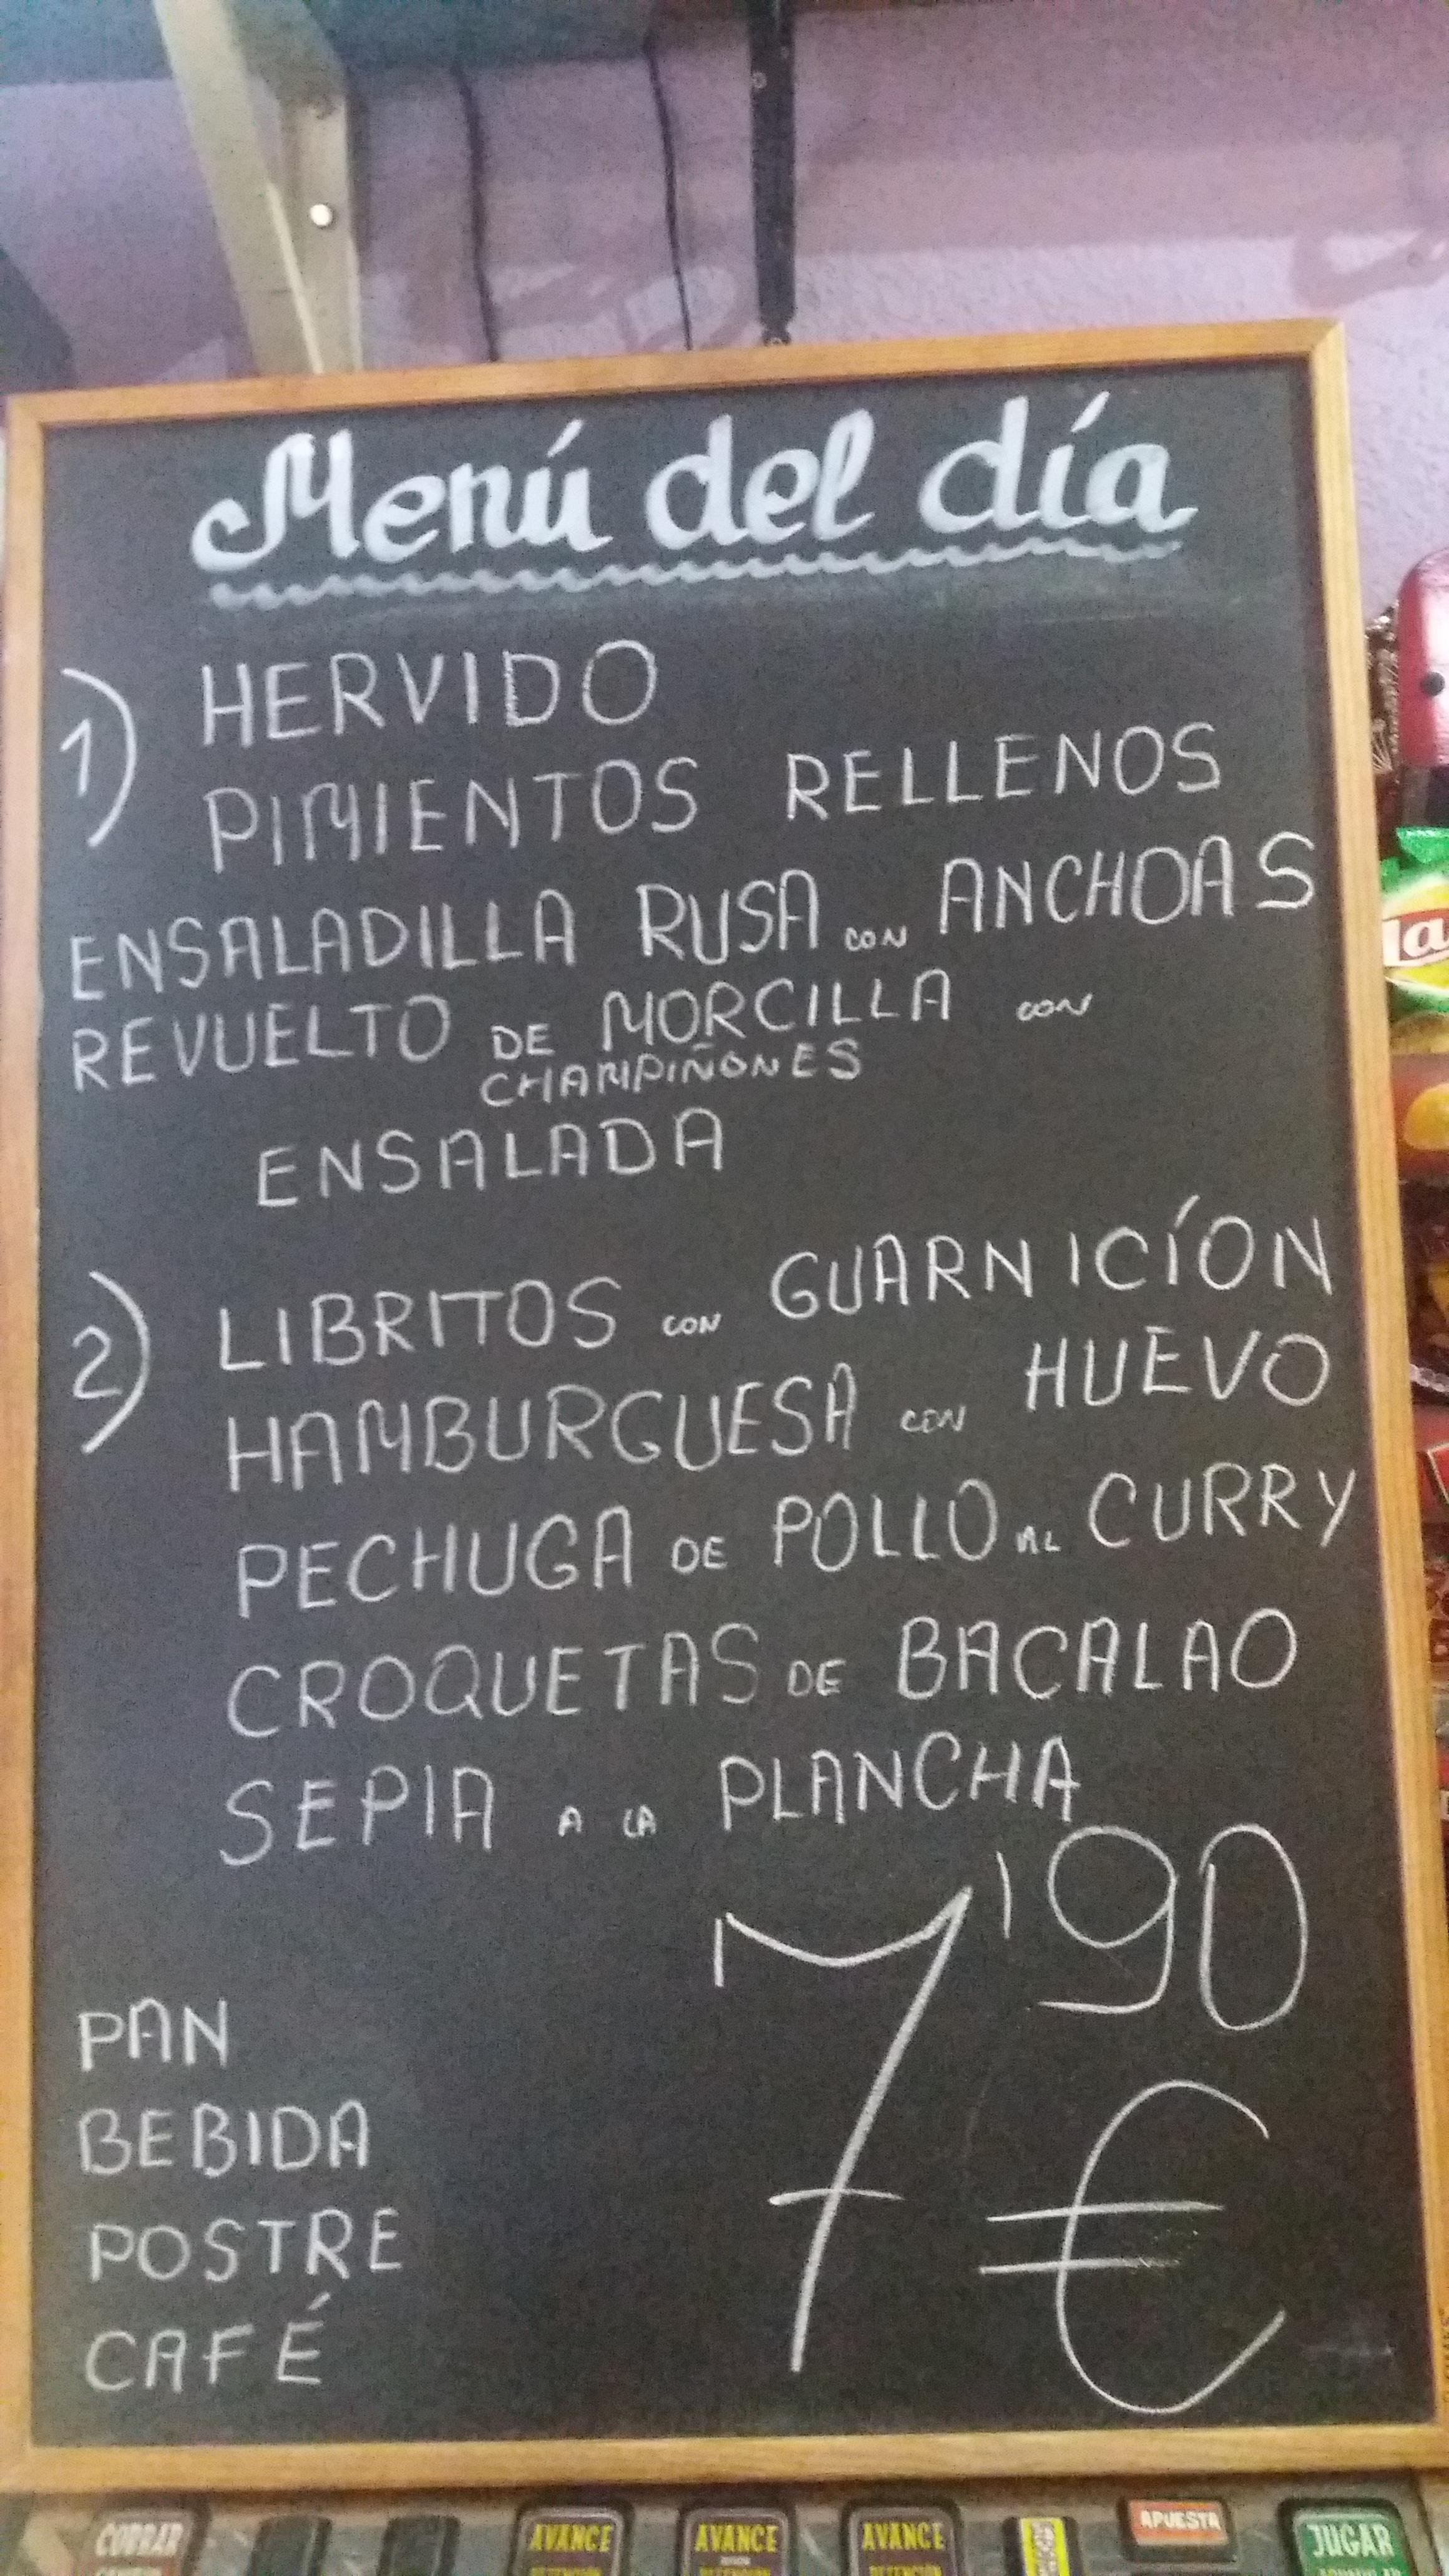 Menú del día
1) HERVIDO
PIMIENTOS RELLENOS
ENSALADILLA RUSA CON ANCHOAS
REVUELTO DE MORCILLA CON
CHAMPIÑONES
ENSALADA
2) LIBRITOS CON GUARNICÍON
HAMBURGUESA CON HUEVO
PECHUGA DE POLLO AL CURRY
CROQUETAS DE BACALAO
SEPIA A LA PLANCHA
7'90
€
PAN
BEBIDA
POSTRE
CAFÉ
la
COBRAR
AVANCE
RETENCION
AVANCE
RETENCION
AVANCE
RETENCION
APUESTA
JUGAR